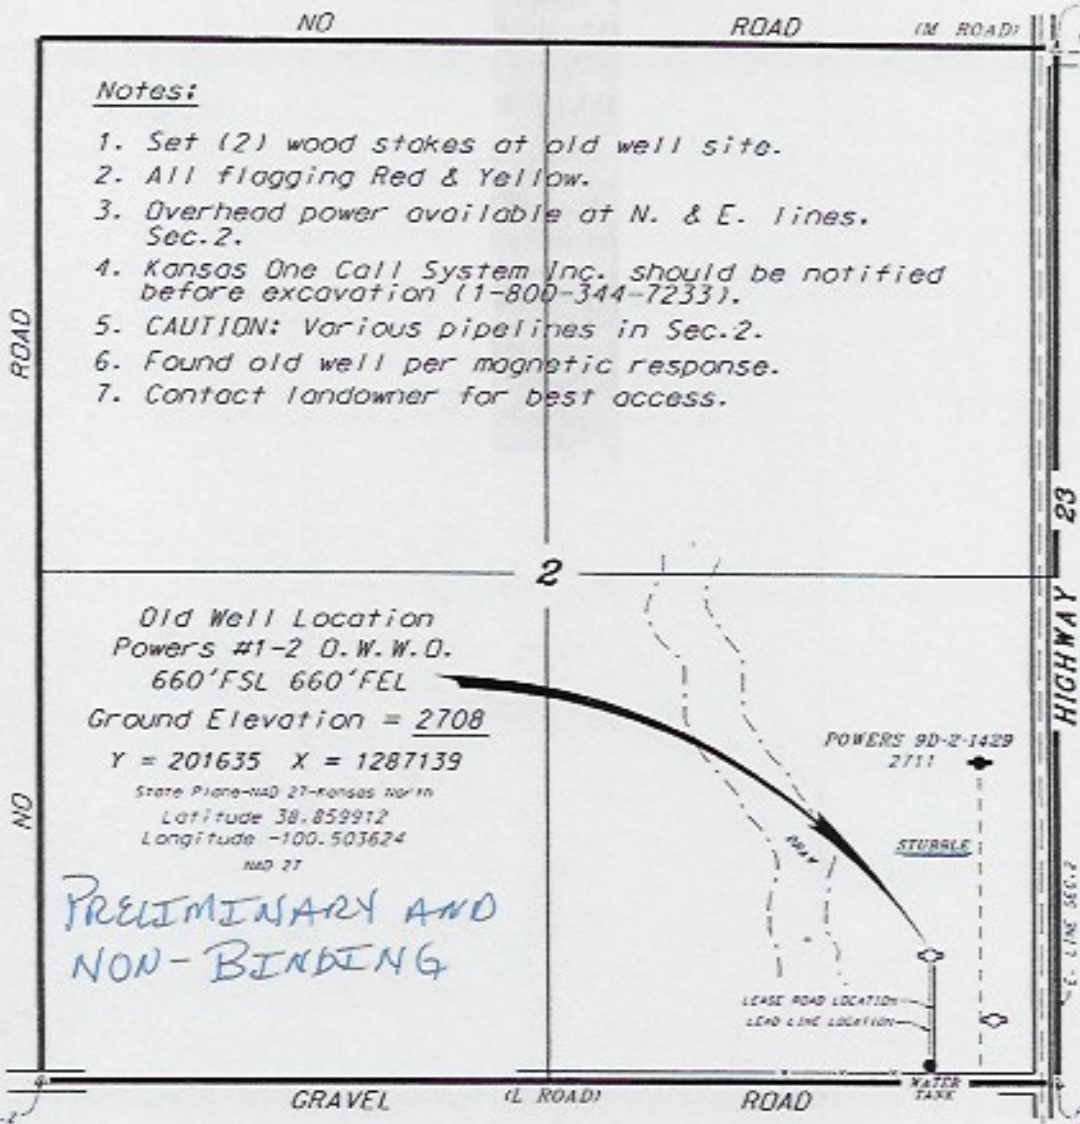 NO ROAD (M ROAD)
Notes:
1. Set (2) wood stakes at old well site.
2. All flagging Red & Yellow.
3. Overhead power available at N. & E. lines.
Sec.2.
4. Kansas One Call System Inc. should be notified
before excavation (1-800-344-7233).
5. CAUTION: Various pipelines in Sec.2.
6. Found old well per magnetic response.
7. Contact landowner for best access.
NO ROAD
HIGHWAY 23
2
Old Well Location
Powers #1-2 O.W.W.O.
660'FSL 660'FEL
Ground Elevation = 2708
Y = 201635 X = 1287139
State Plane-NAD 27-Kansas North
Latitude 38.859912
Longitude -100.503624
NAD 27
PRELIMINARY AND
NON-BINDING
POWERS 9D-2-1429
2711
STUBBLE
DRAW
E. LINE SEC.2
LEASE ROAD LOCATION
LEAD LINE LOCATION
WATER
TANK
GRAVEL (L ROAD) ROAD